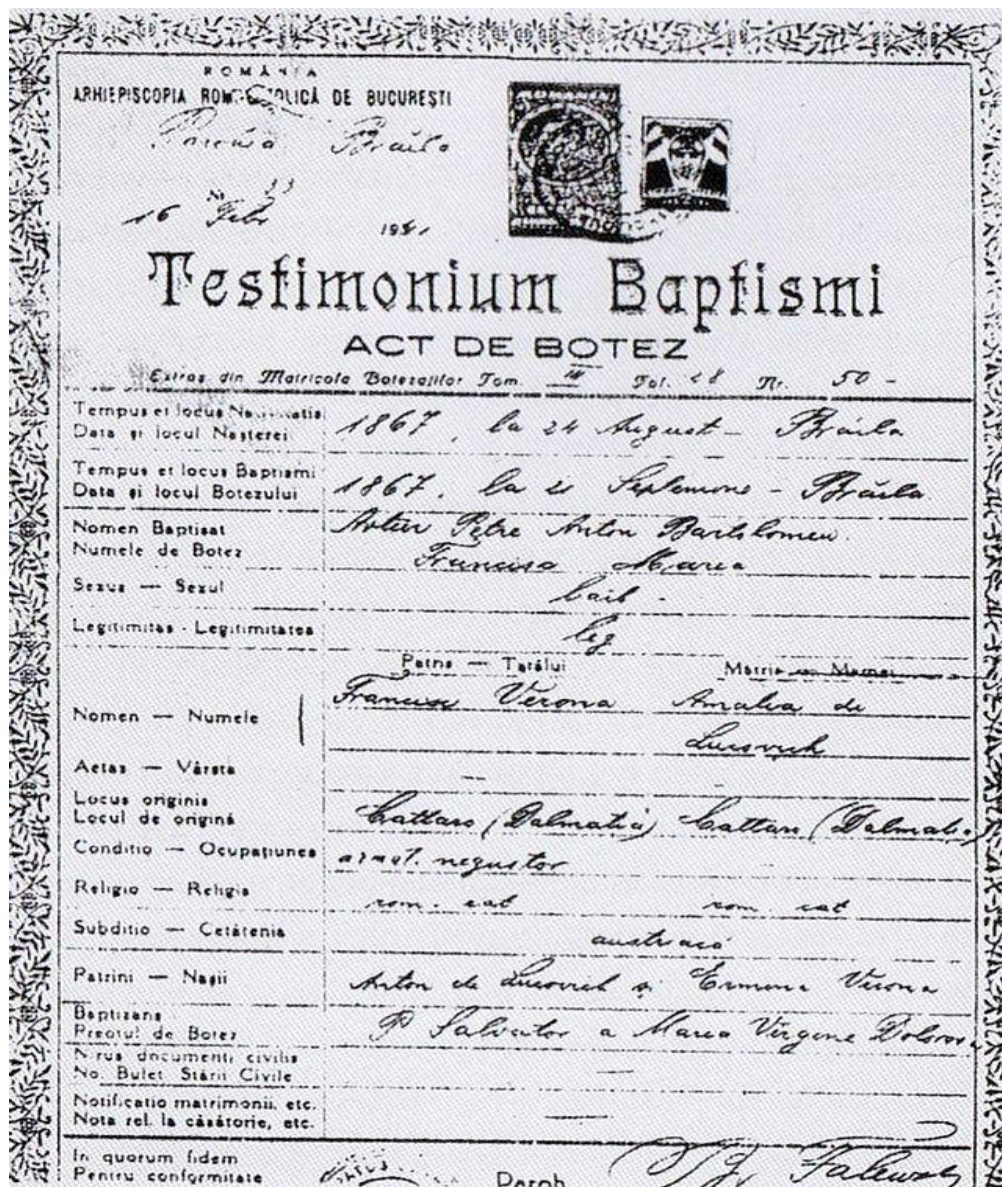 ROMÂNIA
ARHIEPISCOPIA ROMANO-CATOLICĂ DE BUCUREȘTI
Brăila
Nr.
16 Febr 194
Testimonium Baptismi
ACT DE BOTEZ
Extras din Matricola Botezaților Tom. III Fol. 48 Nr. 50 -
Tempus et locus Nativitatis
Data și locul Nașterei 1867, la 24 August - Brăila
Tempus et locus Baptismi
Data și locul Botezului 1867, la 21 Septemvrie - Brăila
Nomen Baptisat Artur Petre Anton Bartolomeu
Numele de Botez Francisc Maria
Sexus — Sexul băit -
Legitimitas - Legitimitatea leg
Patris — Tatălui Matris — Mamei
Nomen — Numele Francisc Verona Amalia de
Lucovich
Aetas — Vârsta —
Locus originis
Locul de origină Cattaro (Dalmatia) Cattaro (Dalmatia)
Conditio — Ocupațiunea armat. negustor
Religio — Religia rom. cat rom. cat
Subditio — Cetățenia austriacă
Patrini — Nașii Anton de Lucovich și Ermina Verona
Baptizans
Preotul de Botez P Salvator a Maria Virgine Dolorosa
N-rus documenti civilis
No. Bulet. Stării Civile —
Notificatio matrimonii, etc.
Nota rel. la căsătorie, etc. —
In quorum fidem
Pentru conformitate Paroh